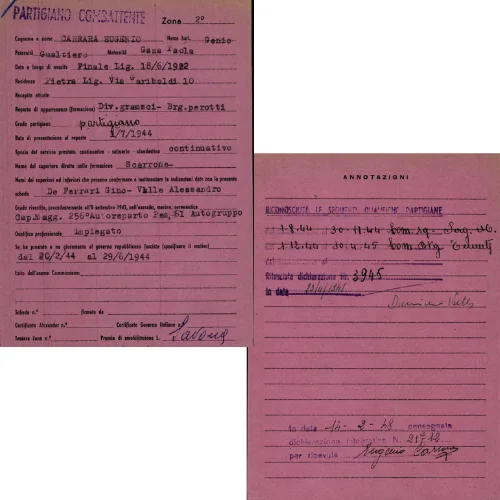 PARTIGIANO COMBATTENTE Zona 2°
Cognome e nome CARRARA EUGENIO Nome batt. Genio
Paternità Gualtiero Maternità Gaza Paola
Data e luogo di nascita Finale Lig. 18/6/1922
Residenza Pietra Lig. Via Garibaldi 10
Recapito attuale
Reparto di appartenenza (formazione) Div.gramsci- Brg.perotti
Grado partigiano partigiano
Data di presentazione al reparto 1/7/1944
Specie del servizio prestato, continuativo - saltuario - clandestino continuativo
Nome del capostare diretto nella formazione Scarrone-
Nomi dei superiori ed inferiori che possono confermare e testimoniare le indicazioni date con la presente
scheda De Ferrari Gino- Valle Alessandro
Grado rivestito, precedentemente all'8 settembre 1943, nell'esercito, marina, aeronautica
Cap.Magg. 256°Autoreparto Pes, 51 Autogruppo
Qualifica professionale impiegato
Se ha prestato o no giuramento al governo repubblicano fascista (specificare il motivo)
dal 20/2/44 al 29/6/1944
Esito dell'esame Commissione
Scheda n.° firmata da
Certificato Alexander n.° Certificato Governo Italiano n.°
Tessera Zona n.° Premio di smobilitazione L. Savona
ANNOTAZIONI
RICONOSCIUTE LE SEGUENTI QUALIFICHE PARTIGIANE
dal 1.8.44 al 30.11.44 Com. Sq. Serg. M.
dal 1.12.44 al 30.4.45 Com.
dal al
Rilasciata dichiarazione Nr. 3945
in data
In data 14-2-48 consegnata
dichiarazione integrativa N. 21712
per ricevuta Eugenio Carrara